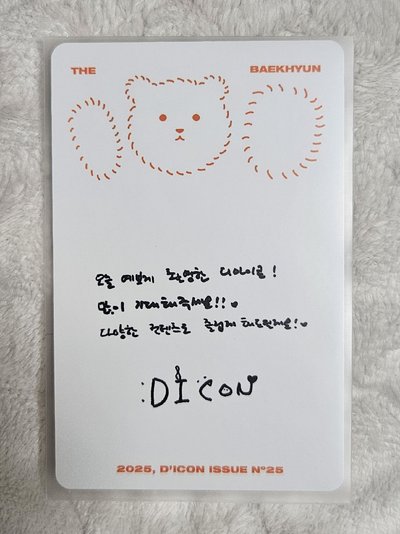 THE BAEKHYUN
오늘 예쁘게 촬영한 디아이콘!
많이 기대해주세요!!♥
다양한 컨텐츠로 즐겁게 해드릴게요!♥
:DI:CON
2025, D'ICON ISSUE Nº25